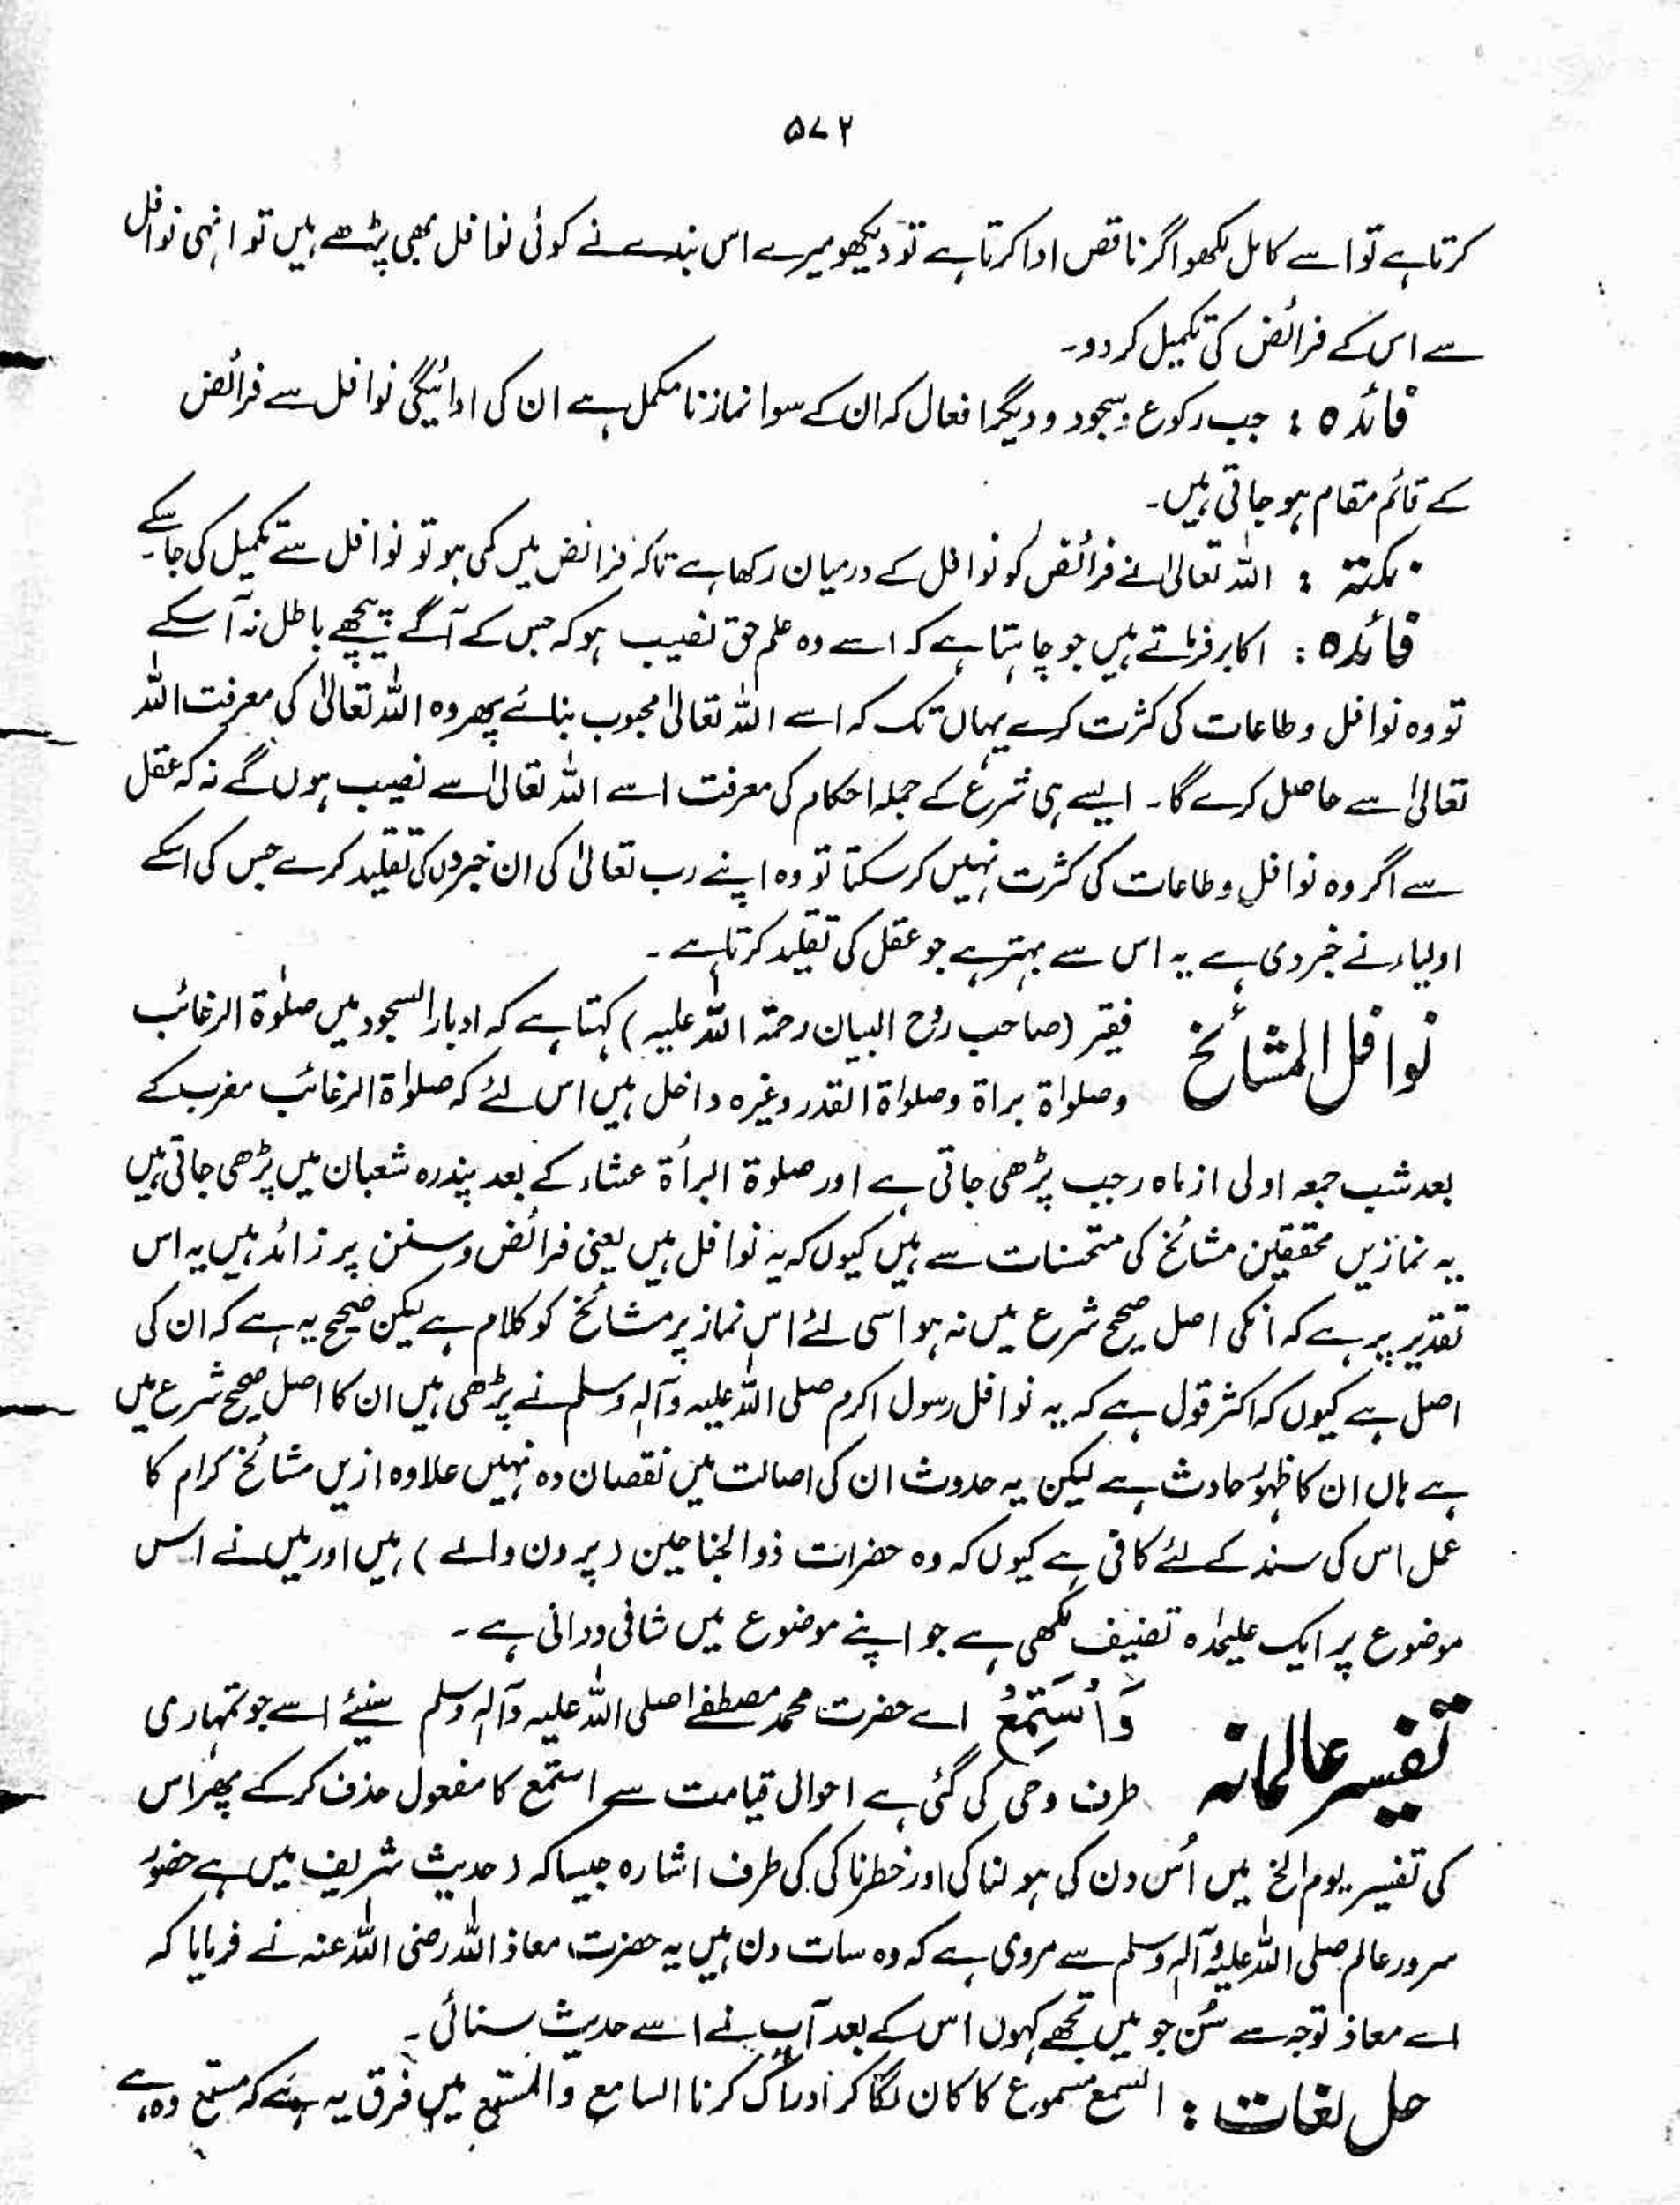 ۵۷۲
کرتا ہے تو اسے کامل لکھو اگر ناقص ادا کرتا ہے تو دیکھو میرے اس بندے نے کوئی نوافل بھی پڑھے ہیں تو انہی نوافل
سے اس کے فرائض کی تکمیل کر دو۔
فائدہ : جب رکوع و سجود و دیگر افعال کہ ان کے سوا نماز نا مکمل ہے ان کی ادائیگی نوافل سے فرائض
کے قائم مقام ہو جاتی ہیں۔
نکتہ : اللہ تعالیٰ نے فرائض کو نوافل کے درمیان رکھا ہے تاکہ فرائض میں کمی ہو تو نوافل سے تکمیل کی جا سکے۔
فائدہ : اکابر فرماتے ہیں جو چاہتا ہے کہ اسے وہ علم حق نصیب ہو کہ جس کے آگے پیچھے باطل نہ آ سکے
تو وہ نوافل و طاعات کی کثرت کرے یہاں تک کہ اسے اللہ تعالیٰ محبوب بنائے پھر وہ اللہ تعالیٰ کی معرفت اللہ
تعالیٰ سے حاصل کرے گا۔ ایسے ہی شرع کے جملہ احکام کی معرفت اسے اللہ تعالیٰ سے نصیب ہوں گے نہ کہ عقل
سے اگر وہ نوافل و طاعات کی کثرت نہیں کر سکتا تو وہ اپنے رب تعالیٰ کی ان خبروں کی تقلید کرے جس کی اسکے
اولیاء نے خبر دی ہے یہ اس سے بہتر ہے جو عقل کی تقلید کرتا ہے۔
نوافل المشائخ فقیر (صاحب روح البیان رحمۃ اللہ علیہ) کہتا ہے کہ ادبار السجود میں صلوٰۃ الرغائب
وصلواۃ براۃ وصلواۃ القدر وغیرہ داخل ہیں اس لئے کہ صلواۃ الرغائب مغرب کے
بعد شب جمعہ اولی از ماہ رجب پڑھی جاتی ہے اور صلوۃ البرأۃ عشاء کے بعد پندرہ شعبان میں پڑھی جاتی ہیں
یہ نمازیں محققین مشائخ کی متحسنات سے ہیں کیوں کہ یہ نوافل ہیں یعنی فرائض و سنن پر زائد ہیں یہ اس
تقدیر پر ہے کہ انکی اصل صحیح شرع میں نہ ہو اسی لئے اس نماز پر مشائخ کو کلام ہے لیکن صحیح یہ ہے کہ ان کی
اصل ہے کیوں کہ اکثر قول ہے کہ یہ نوافل رسول اکرم صلی اللہ علیہ وآلہ وسلم نے پڑھی ہیں ان کا اصل صحیح شرع میں
ہے ہاں ان کا ظہور حادث ہے لیکن یہ حدوث ان کی اصالت میں نقصان دہ نہیں علاوہ ازیں مشائخ کرام کا
عمل اس کی سند کے لئے کافی ہے کیوں کہ وہ حضرات ذوالجناحین (پروں والے) ہیں اور میں نے اس
موضوع پر ایک علیحدہ تصنیف لکھی ہے جو اپنے موضوع میں شافی ووافی ہے۔
تفسیر عالمانہ وَاسْتَمِعْ اے حضرت محمد مصطفےٰ صلی اللہ علیہ وآلہ وسلم سنیئے اسے جو تمہاری
طرف وحی کی گئی ہے احوال قیامت سے استمع کا مفعول حذف کر کے پھر اس
کی تفسیر یوم الخ میں اُس دن کی ہولناکی اور خطرناکی کی طرف اشارہ جیسا کہ (حدیث شریف میں ہے حضور
سرور عالم صلی اللہ علیہ وآلہ وسلم سے مروی ہے کہ وہ سات دن ہیں یہ حضرت معاذ اللہ رضی اللہ عنہ نے فرمایا کہ
اے معاذ توجہ سے سُن جو میں تجھے کہوں اس کے بعد آپ نے اسے حدیث سنائی۔
حل لغات : السمع مسموع کا کان لگا کر ادراک کرنا السامع والمستمع میں فرق یہ ہے کہ مستمع وہ ہے